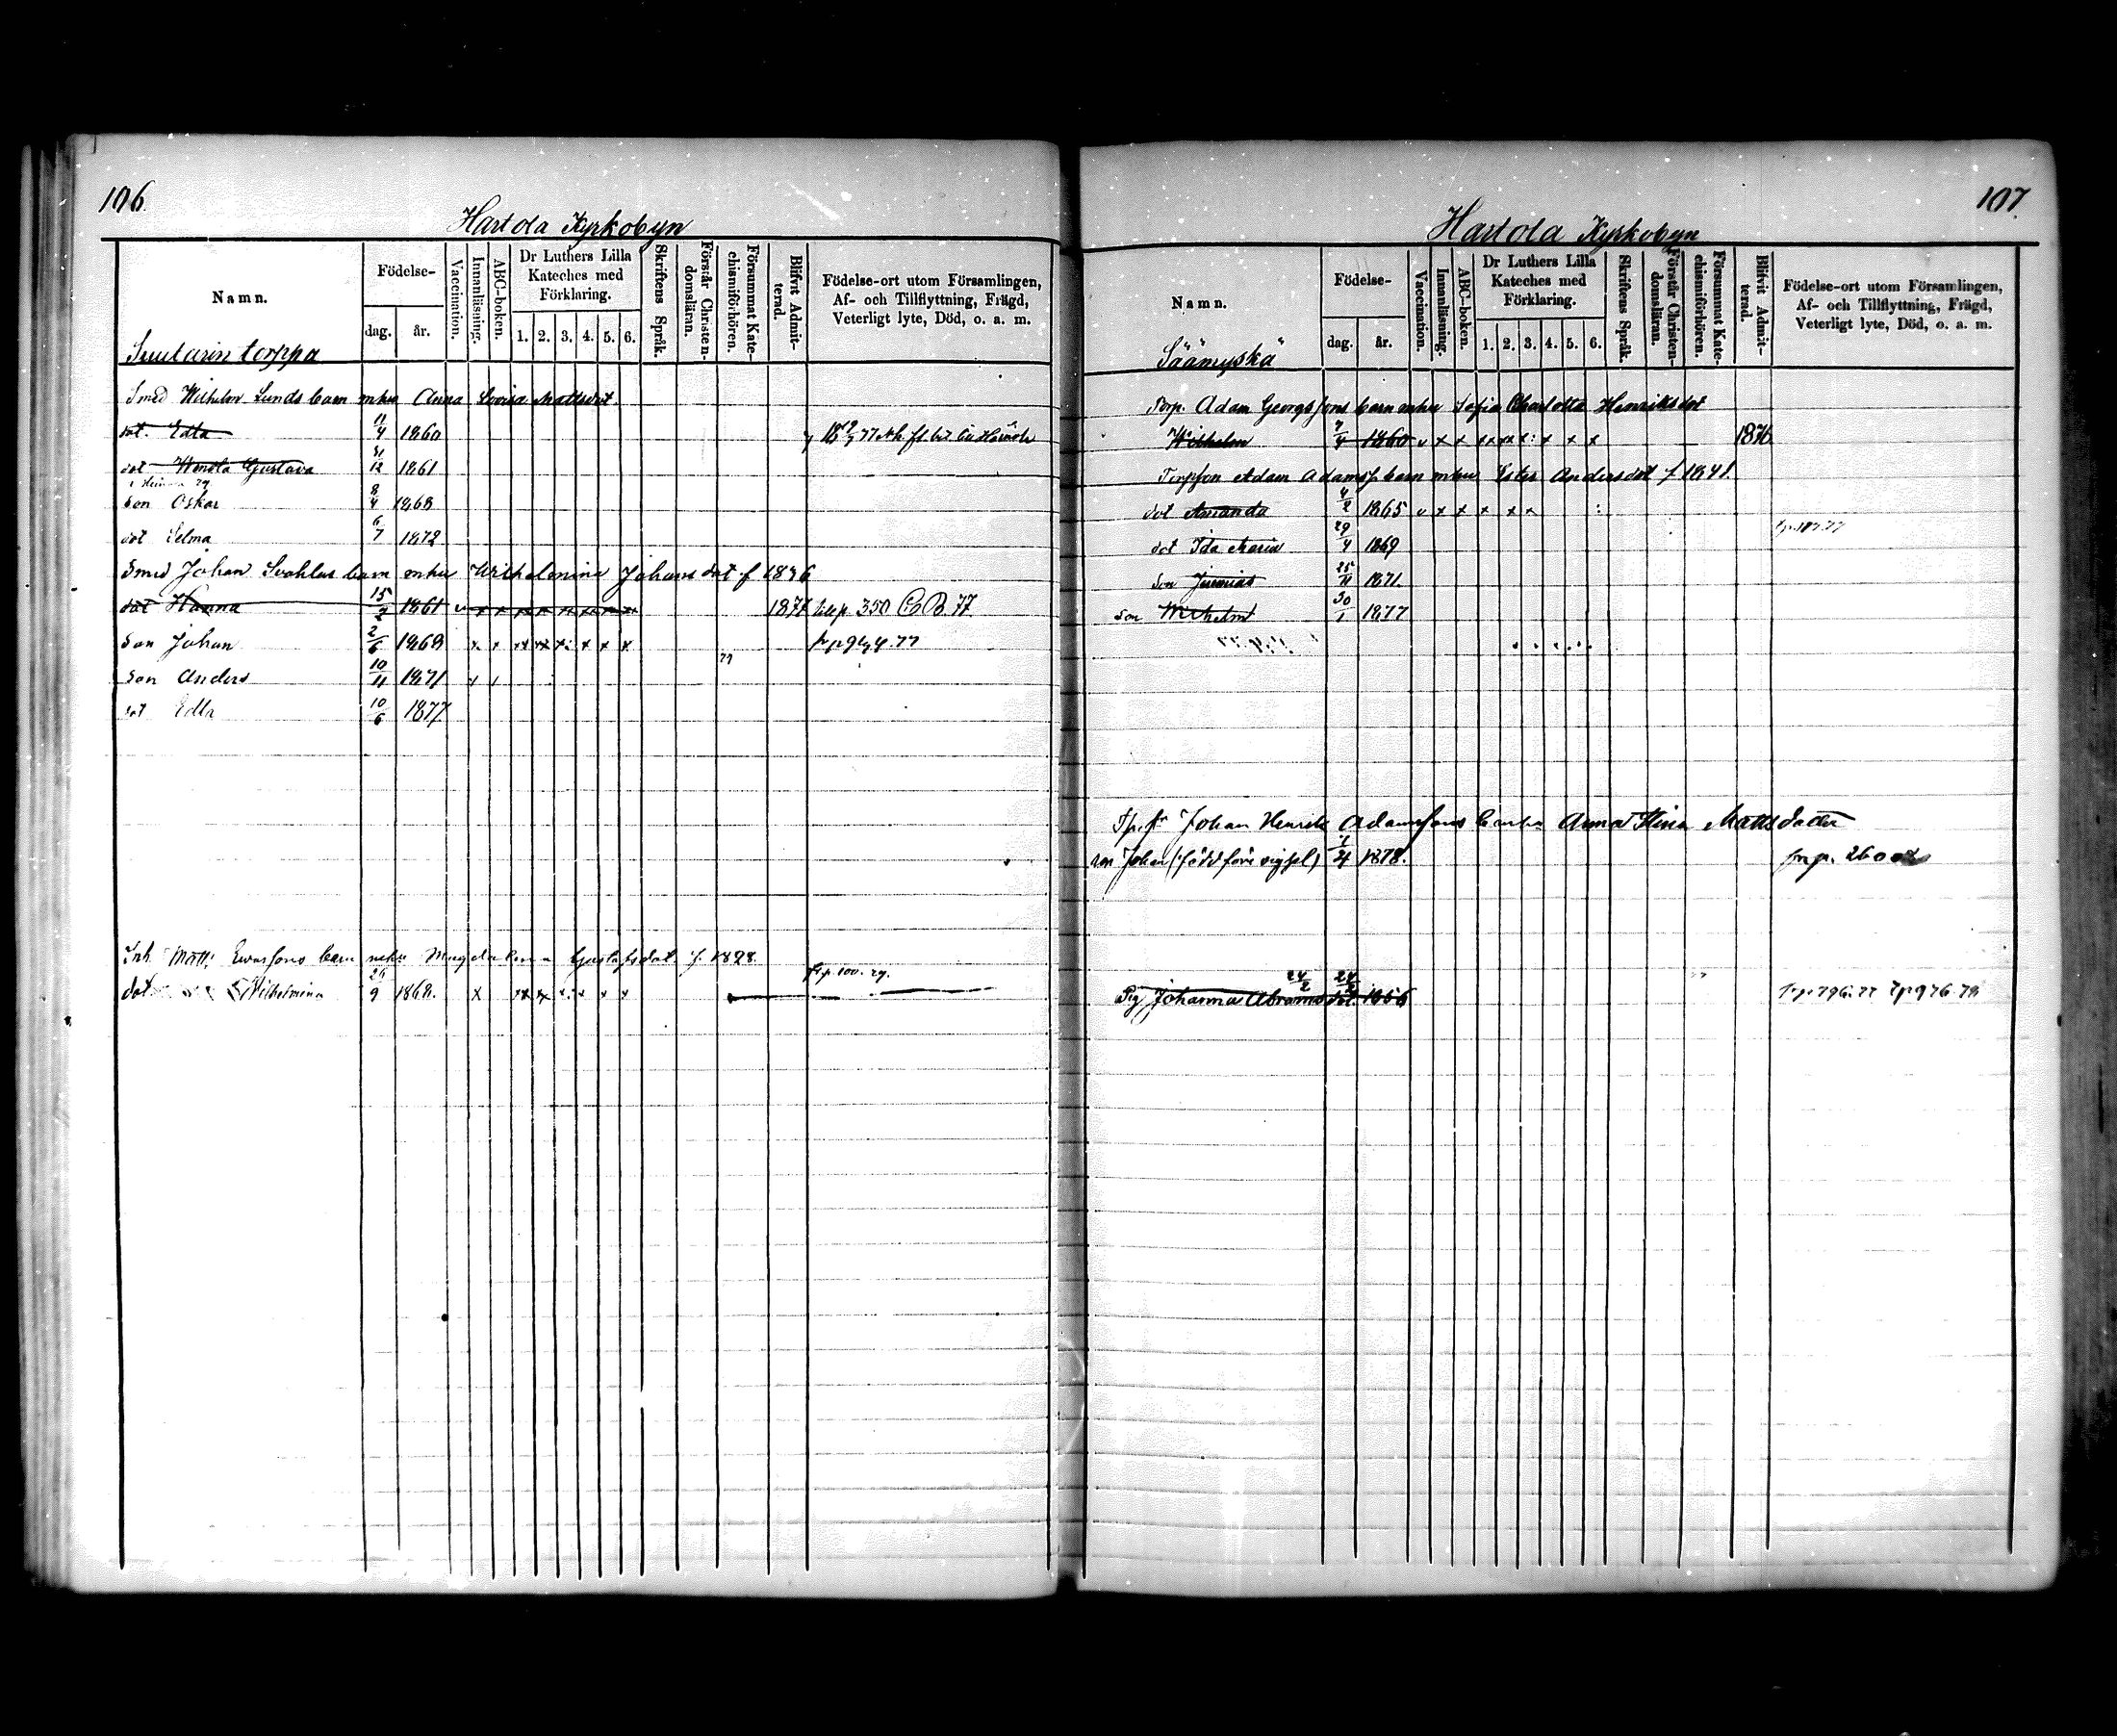 106.
Hartola Kyrkobyn
Namn.
Födelse-
dag.
år.
Vaccination.
Innanläsning.
ABC-boken.
Dr Luthers Lilla Kateches med Förklaring.
1. 2. 3. 4. 5. 6.
Skriftens Språk.
Förstår Christendomsläran.
Försummat Katechismiförhören.
Blifvit Admitterad.
Födelse-ort utom Församlingen,
Af- och Tillflyttning, Frägd,
Veterligt lyte, Död, o. a. m.
torppa
Smed Wilhelm Lunds barn mhu Anna Lovisa Mattsdot.
dot. Edla 11/4 1860
dot Gustava 31/12 1861
son Oskar 8/4 1868
dot Selma 6/7 1872
Smed Johan barn mhu Wilhelmina Johansdot f 1836
dot Hanna 15/2 1861 v x x x x x x x x 1877 350 CoB 77
son Johan 2/6 1868 x x xx xx x: x x x
79
son Anders 10/11 1871
dot Edla 10/6 1877
Inh. Matts barn mhu Magdalena Gustafsdot. f. 1828.
frp. 100. 79.
dot Wilhelmina 26/9 1862. x xx x x: x x x
107.
Hartola Kyrkobyn
Namn.
Födelse-
dag.
år.
Vaccination.
Innanläsning.
ABC-boken.
Dr Luthers Lilla Kateches med Förklaring.
1. 2. 3. 4. 5. 6.
Skriftens Språk.
Förstår Christendomsläran.
Försummat Katechismiförhören.
Blifvit Admitterad.
Födelse-ort utom Församlingen,
Af- och Tillflyttning, Frägd,
Veterligt lyte, Död, o. a. m.
Säämyskä
Torp. Adam Georgssons barn mhu Sofia Charlotta Henriksdot
Wilhelm 7/4 1860 v x x xx xx x: x x x 1876
Torpson Adam Adamss. barn mhu Ester Andersdot f 1841.
dot Amanda 4/2 1865 v x x x x x
dot Ida Maria 29/4 1869
son Jeremias 25/11 1871
son Wilhelm 30/1 1877
Johan Henrik Adamssons Anna Stina Mattsdotter
son Johan (född före vigsel) 1/4 1878. frp. 260
24/2 24/2
Pig Johanna Abramsdot. 1856 frp 796. 77 tp 976. 78